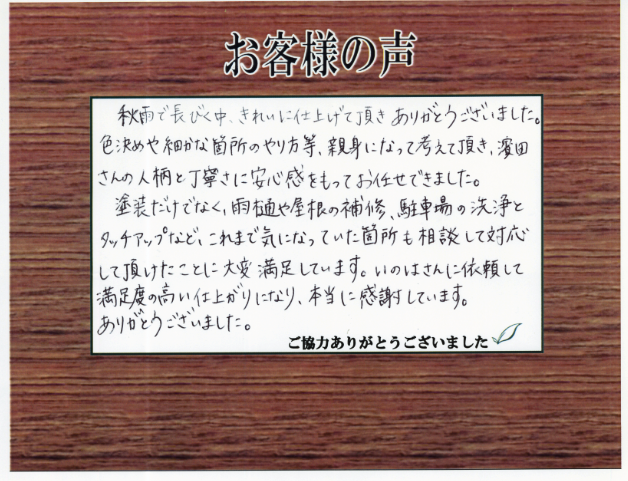 お客様の声
秋雨で長びく中、きれいに仕上げて頂きありがとうございました。
色決めや細かな箇所のやり方等、親身になって考えて頂き、濵田
さんの人柄と丁寧さに安心感をもってお任せできました。
塗装だけでなく、雨樋や屋根の補修、駐車場の洗浄と
タッチアップなど、これまで気になっていた箇所も相談して対応
して頂けたことに大変満足しています。いのはさんに依頼して
満足度の高い仕上がりになり、本当に感謝しています。
ありがとうございました。
ご協力ありがとうございました